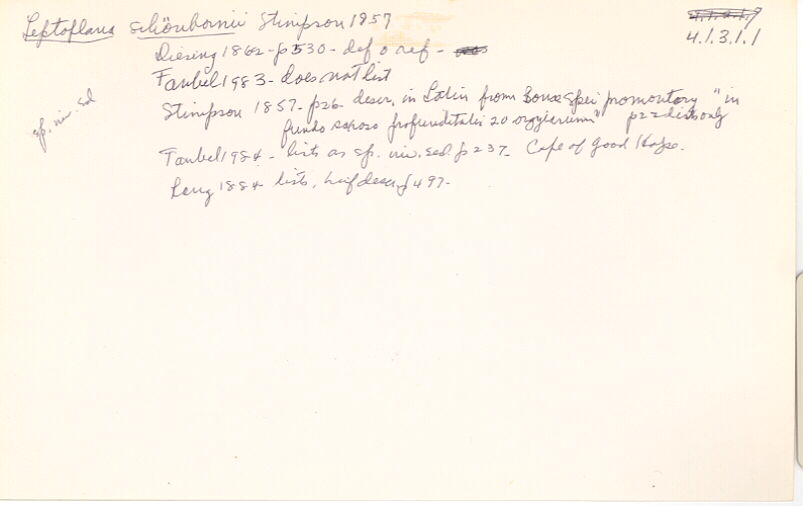 Leptoplana schönbornii Stimpson 1857
4.1.3.1.1
Diesing 1862 - p530 - def o ref -
Faubel 1983 - does not list
sp. niv. sed
Stimpson 1857 - p26 descr. in Latin from Bonae Spei promontory "in
fundo saxoso profunditatis 20 orgyiarum" p22 dists only
Faubel 1984 - lists as sp. niv. sed. p237. Cape of Good Hope.
Lang 1884 lists, brief descr. p497.